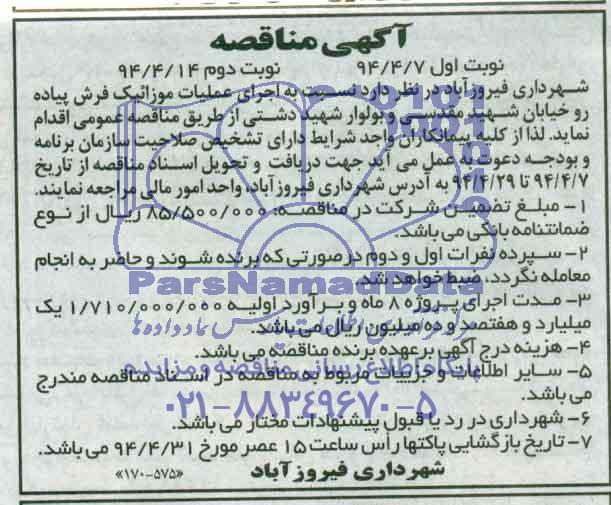 آگهی مناقصه
نوبت اول ۹۴/۴/۷ نوبت دوم ۹۴/۴/۱۴
شهرداری فیروزآباد در نظر دارد نسبت به اجرای عملیات موزائیک فرش پیاده
رو خیابان شهید مقدسی و بولوار شهید دشتی از طریق مناقصه عمومی اقدام
نماید. لذا از کلیه پیمانکاران واجد شرایط دارای تشخیص صلاحیت سازمان برنامه
و بودجه دعوت به عمل می آید جهت دریافت و تحویل اسناد مناقصه از تاریخ
۹۴/۴/۷ تا ۹۴/۴/۲۹ به آدرس شهرداری فیروزآباد، واحد امور مالی مراجعه نمایند.
۱- مبلغ تضمین شرکت در مناقصه: ۸۵/۵۰۰/۰۰۰ ریال از نوع
ضمانتنامه بانکی می باشد.
۲- سپرده نفرات اول و دوم در صورتی که برنده شوند و حاضر به انجام
معامله نگردد، ضبط خواهد شد.
ParsNamadData
۳- مدت اجرای پروژه ۸ ماه و برآورد اولیه ۱/۷۱۰/۰۰۰/۰۰۰ یک
میلیارد و هفتصد و ده میلیون ریال می باشد.
۴- هزینه درج آگهی برعهده برنده مناقصه می باشد.
پایگاه اطلاع رسانی مناقصه و مزایده
۵- سایر اطلاعات و جزییات مربوط به مناقصه در اسناد مناقصه مندرج
می باشد.
۰۲۱-۸۸۳۴۹۶۷۰-۵
۶- شهرداری در رد یا قبول پیشنهادات مختار می باشد.
۷- تاریخ بازگشایی پاکتها رأس ساعت ۱۵ عصر مورخ ۹۴/۴/۳۱ می باشد.
شهرداری فیروزآباد «۱۷۰-۵۷۵»